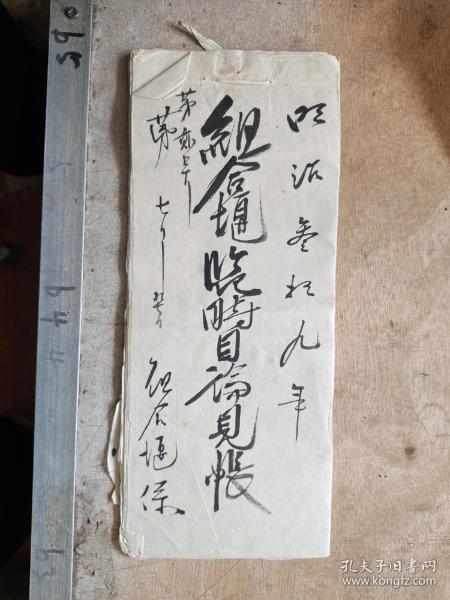 明治叁拾九年
組合堰臨時目論見帳
第
七月
組合堰係
孔夫子旧书网
www.kongfz.com